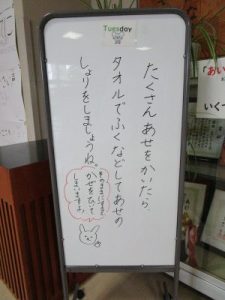 Tuesday
たくさん あせを かいたら、
タオルで ふくなどして あせの
しょりを しましょうね。
そのままにすると
かぜを ひいて
しまいますよ。
あい
いくつ